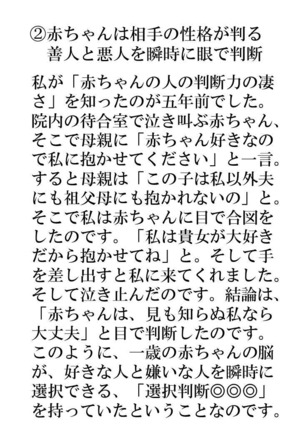 ②赤ちゃんは相手の性格が判る
善人と悪人を瞬時に眼で判断
私が「赤ちゃんの人の判断力の凄
さ」を知ったのが五年前でした。
院内の待合室で泣き叫ぶ赤ちゃん、
そこで母親に「赤ちゃん好きなの
で私に抱かせてください」と一言。
すると母親は「この子は私以外夫
にも祖父母にも抱かれないの」と。
そこで私は赤ちゃんに目で合図を
したのです。「私は貴女が大好き
だから抱かせてね」と。そして手
を差し出すと私に来てくれました。
そして泣き止んだのです。結論は、
「赤ちゃんは、見も知らぬ私なら
大丈夫」と目で判断したのです。
このように、一歳の赤ちゃんの脳
が、好きな人と嫌いな人を瞬時に
選択できる、「選択判断◎◎◎」
を持っていたということなのです。